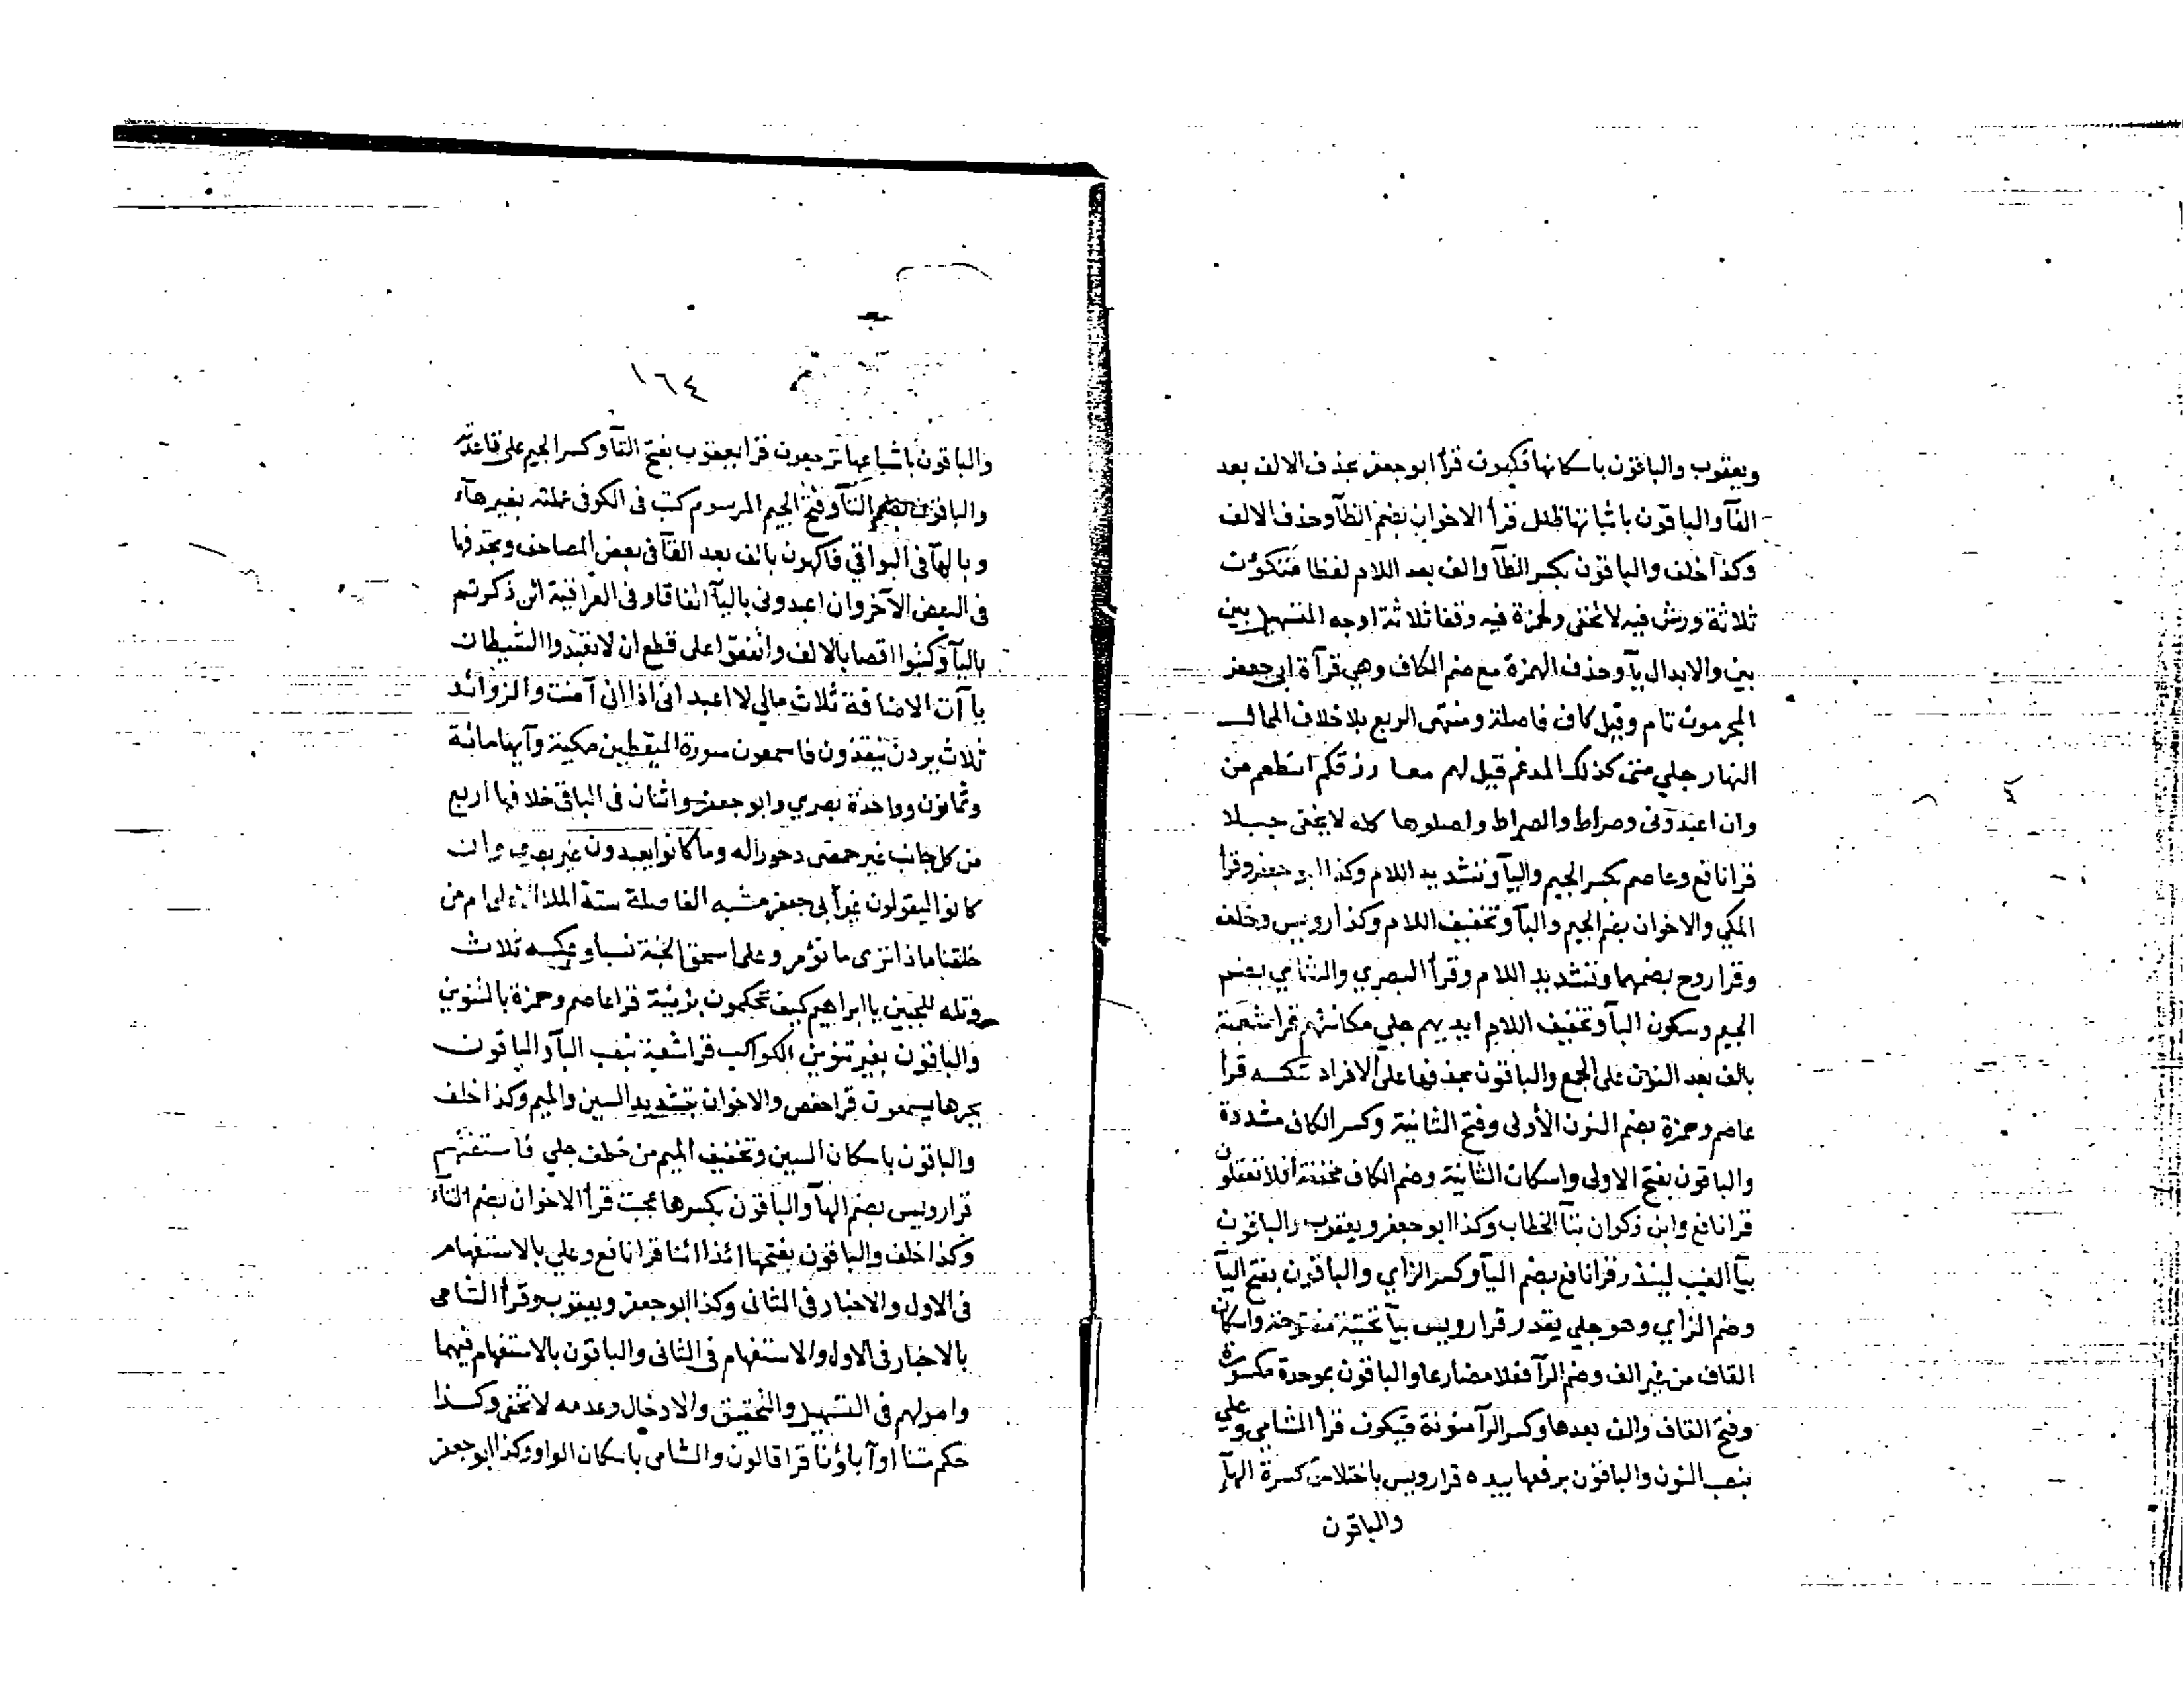 ويعقوب والباقون باسكانها فكهون قرأ ابو جعفر بحذف الالف بعد
الفآ والباقون باثباتها ظلل قرأ الاخوان بضم الظآ وحذف الالف
وكذا خلف والباقون بكسر الظآ والف بعد اللام لفظا متكؤن
ثلاثة ورش فيه لا تخفى ولحمزة فيه وقفا ثلاثة اوجه التسهيل بين
بين والابدال يآ وحذف الهمزة مع ضم الكاف وهي قرآة ابي جعفر
المجرمون تام وقيل كاف فاصلة ومنتهى الربع بلا خلاف الممال
النهار جلي متى كذلك المدغم قيل لهم معا رزقكم انطعم من
وان اعبدونى وصراط والصراط واصلوها كله لا يخفى جبلا
قرا نافع وعاصم بكسر الجيم واليآ وتشديد اللام وكذا ابو جعفر وقرا
المكي والاخوان بضم الجيم والبآ وتخفيف اللام وكذا رويس وخلف
وقرا روح بضمهما وتشديد اللام وقرأ البصري والشامي بضم
الجيم وسكون البآ وتخفيف اللام ايديهم جلي مكانتهم قرا شعبة
بالف بعد النون على الجمع والباقون بحذفها على الافراد ننكسه قرا
عاصم وحمزة بضم النون الأولى وفتح الثانية وكسر الكاف مشددة
والباقون بفتح الاولى واسكان الثانية وضم الكاف مخففة أفلا تعقلون
قرا نافع وابن ذكوان بتآ الخطاب وكذا ابو جعفر ويعقوب والباقون
بيآ الغيب لينذر قرا نافع بضم اليآ وكسر الزاي والباقون بفتح اليآ
وضم الزاي وهو جلي يقدر قرا رويس بيآ تحتية مفتوحة واسكان
القاف من غير الف وضم الرآ فعلا مضارعا والباقون بموحدة مكسورة
وفتح القاف والف بعدها وكسر الرآ منونة فيكون قرا الشامي وعلي
بنصب النون والباقون برفعها بيده قرا رويس باختلاس كسرة الهآ
والباقون
١٦٤
والباقون باشباعها ترجعون قرا يعقوب بفتح التآ وكسر الجيم على قاعدته
والباقون بضم التآ وفتح الجيم المرسوم كتب فى الكوفى عملته بغير هآء
وبالهآ فى البواقي فاكهون بالف بعد الفآ فى بعض المصاحف وبحذفها
فى البعض الآخر وان اعبدونى باليآ اتفاقا وفى العراقية ائن ذكرتم
باليآ وكتبوا اقصا بالالف واتفقوا على قطع ان لا تعبدوا الشيطان
يآآت الاضافة ثلاث مالي لا اعبد انى اذا انى آمنت والزوائد
ثلاث يردن ينقذون فاسمعون سورة اليقطين مكية وآيها مائة
وثمانون وواحدة بصري وابو جعفر واثنان فى الباقى خلافها اربع
من كل جانب غير حمصى دحورا له وما كانوا يعبدون غير بصري وان
كانوا ليقولون غير أبي جعفر مشبه الفاصلة ستة الملا الاعلى ام من
خلقنا ماذا ترى ما تؤمر وعلى اسحق الجنة نسبا وعكسه ثلاث
وتله للجبين يا ابراهيم كيف تحكمون بزينة قرا عاصم وحمزة بالتنوين
والباقون بغير تنوين الكواكب قرا شعبة بنصب البآ والباقون
بجرها يسمعون قرا حفص والاخوان بتشديد السين والميم وكذا خلف
والباقون باسكان السين وتخفيف الميم من خطف جلي فاستفتهم
قرا رويس بضم الهآ والباقون بكسرها عجبت قرأ الاخوان بضم التآء
وكذا خلف والباقون بفتحها ائذا ائنا قرا نافع وعلي بالاستفهام
فى الاول والاخبار فى الثانى وكذا ابو جعفر ويعقوب وقرأ الشامى
بالاخبار فى الاول والاستفهام فى الثانى والباقون بالاستفهام فيهما
واصولهم فى التسهيل والتحقيق والادخال وعدمه لا تخفى وكذا
حكم متنا اوآباؤنا قرا قالون والشامى باسكان الواو وكذا ابو جعفر